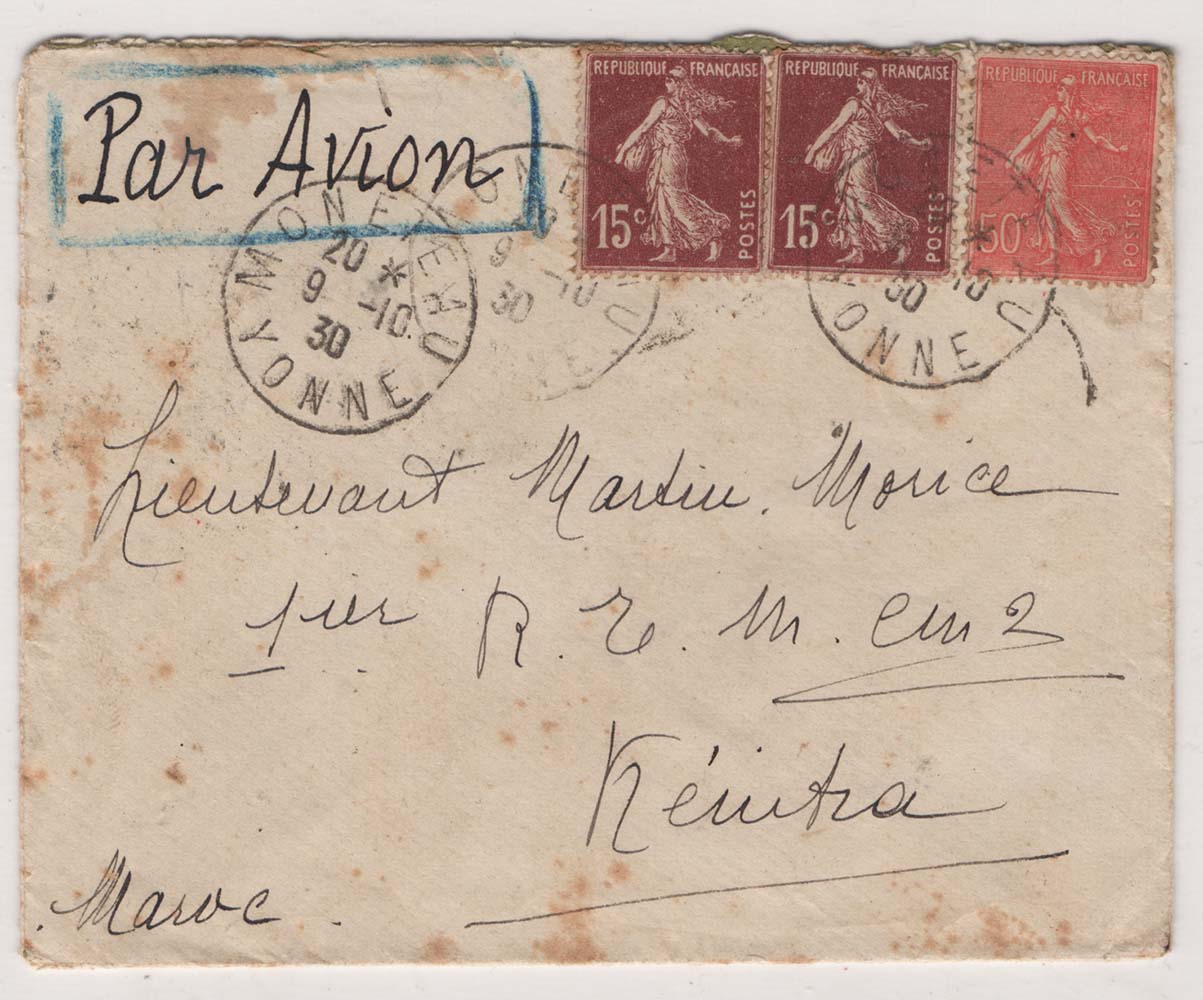 Par Avion
REPUBLIQUE FRANÇAISE
15c POSTES
REPUBLIQUE FRANÇAISE
15c POSTES
REPUBLIQUE FRANÇAISE
50c POSTES
MONETEAU
20 *
9 -10
30
YONNE
9 -10
30
*
30 10
YONNE
Lieutenant Martin. Morice
1ier R. E. M. Cm2
Kénitra
Maroc.